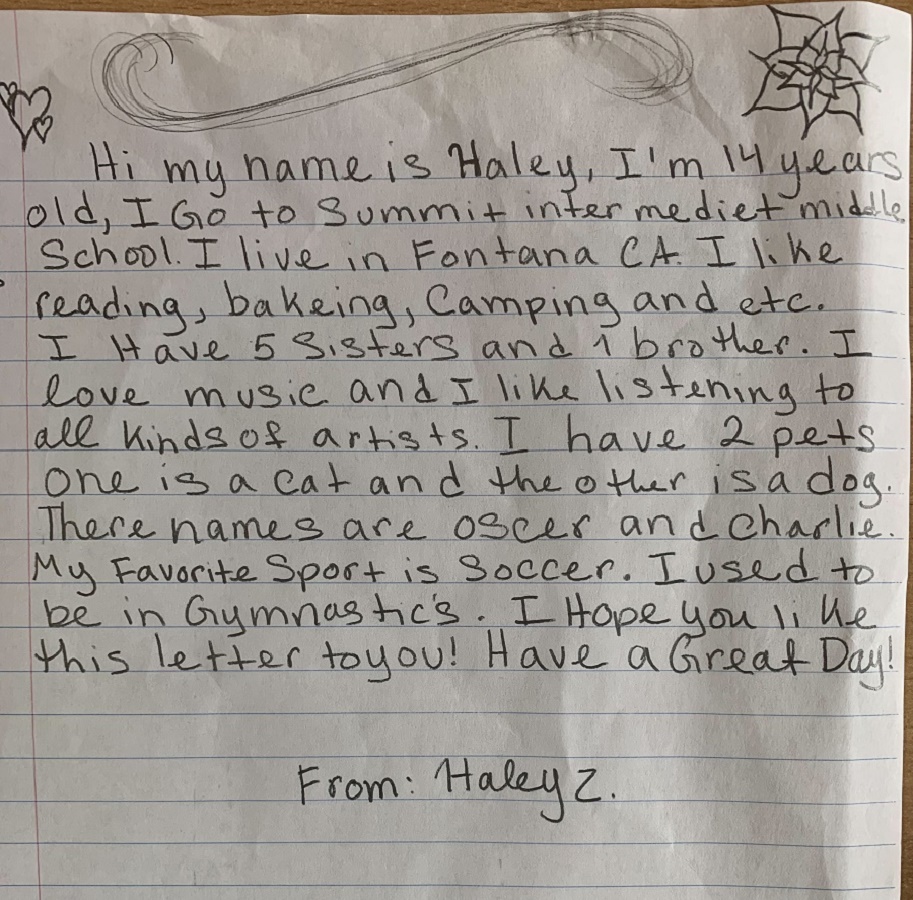 Hi my name is Haley, I'm 14 years
old, I Go to Summit intermediet middle
School. I live in Fontana CA. I like
reading, bakeing, Camping and etc.
I Have 5 Sisters and 1 brother. I
love music and I like listening to
all kinds of artists. I have 2 pets
One is a cat and the other is a dog.
There names are oscer and charlie.
My Favorite Sport is Soccer. I used to
be in Gymnastic's. I Hope you like
this letter to you! Have a Great Day!
From: Haley Z.